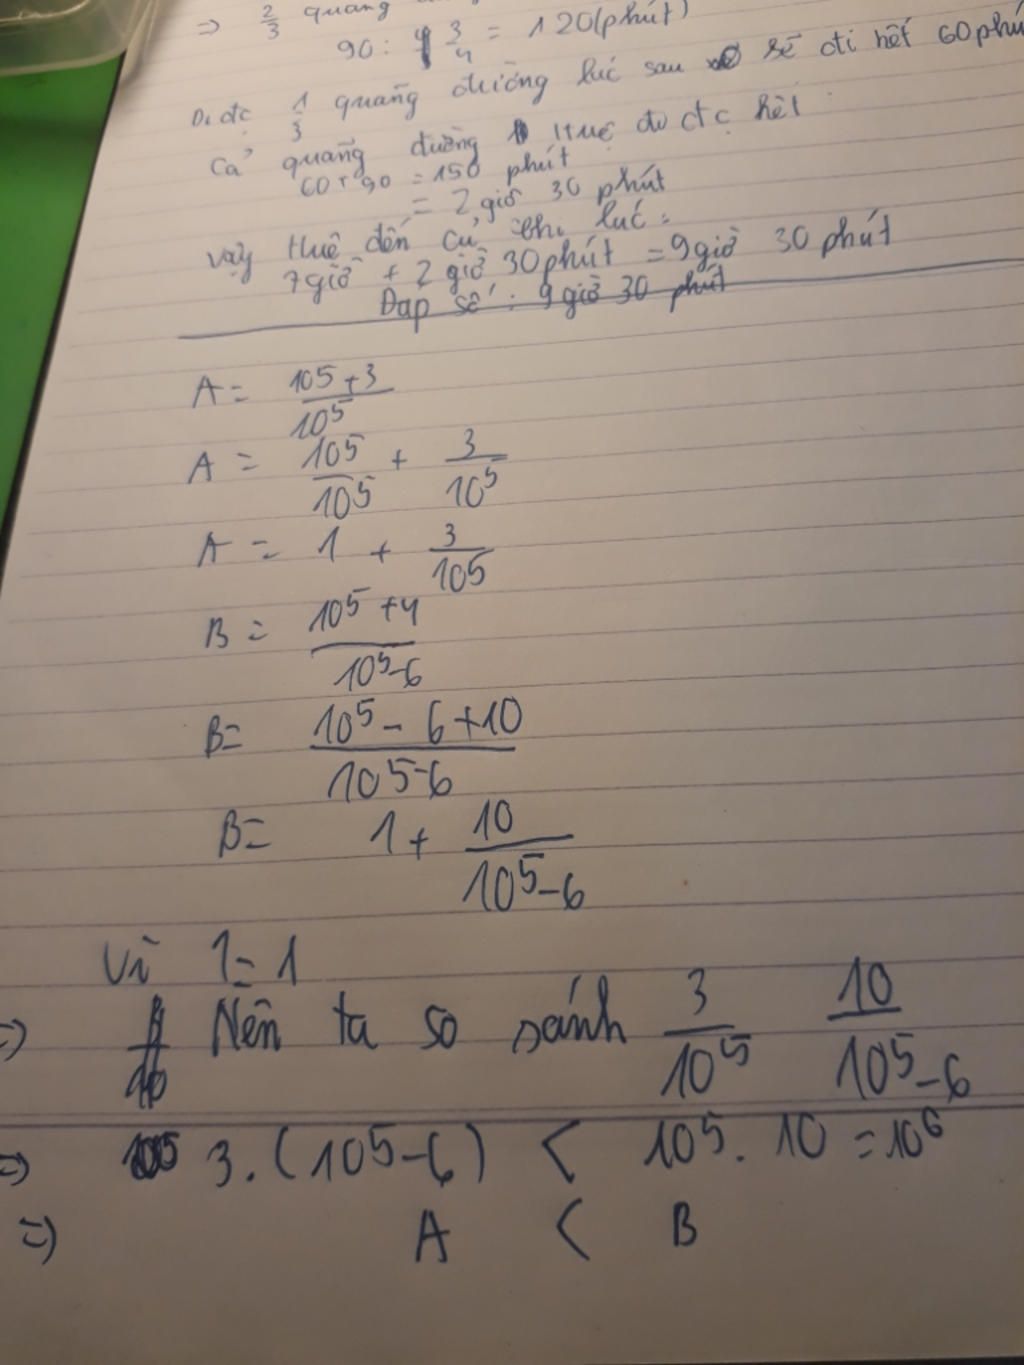 ⇒ 2/3 quang
90 : 3/4 = 120 (phút)
Đi đc 1/3 quãng đường lúc sau sẽ đi hết 60 phú
Cả quãng đường Huệ đi đc hết :
60 + 90 = 150 phút
= 2 giờ 30 phút
Vậy Huệ đến lúc :
7 giờ + 2 giờ 30 phút = 9 giờ 30 phút
Đap số : 9 giờ 30 phút
A = (10⁵ + 3)/10⁵
A = 10⁵/10⁵ + 3/10⁵
A = 1 + 3/10⁵
B = (10⁵ + 4)/(10⁵ - 6)
B = (10⁵ - 6 + 10)/(10⁵ - 6)
B = 1 + 10/(10⁵ - 6)
Vì 1 = 1
⇒ Nên ta so sánh 3/10⁵ 10/(10⁵ - 6)
⇒ 3 . (10⁵ - 6) < 10⁵ . 10 = 10⁶
⇒ A < B